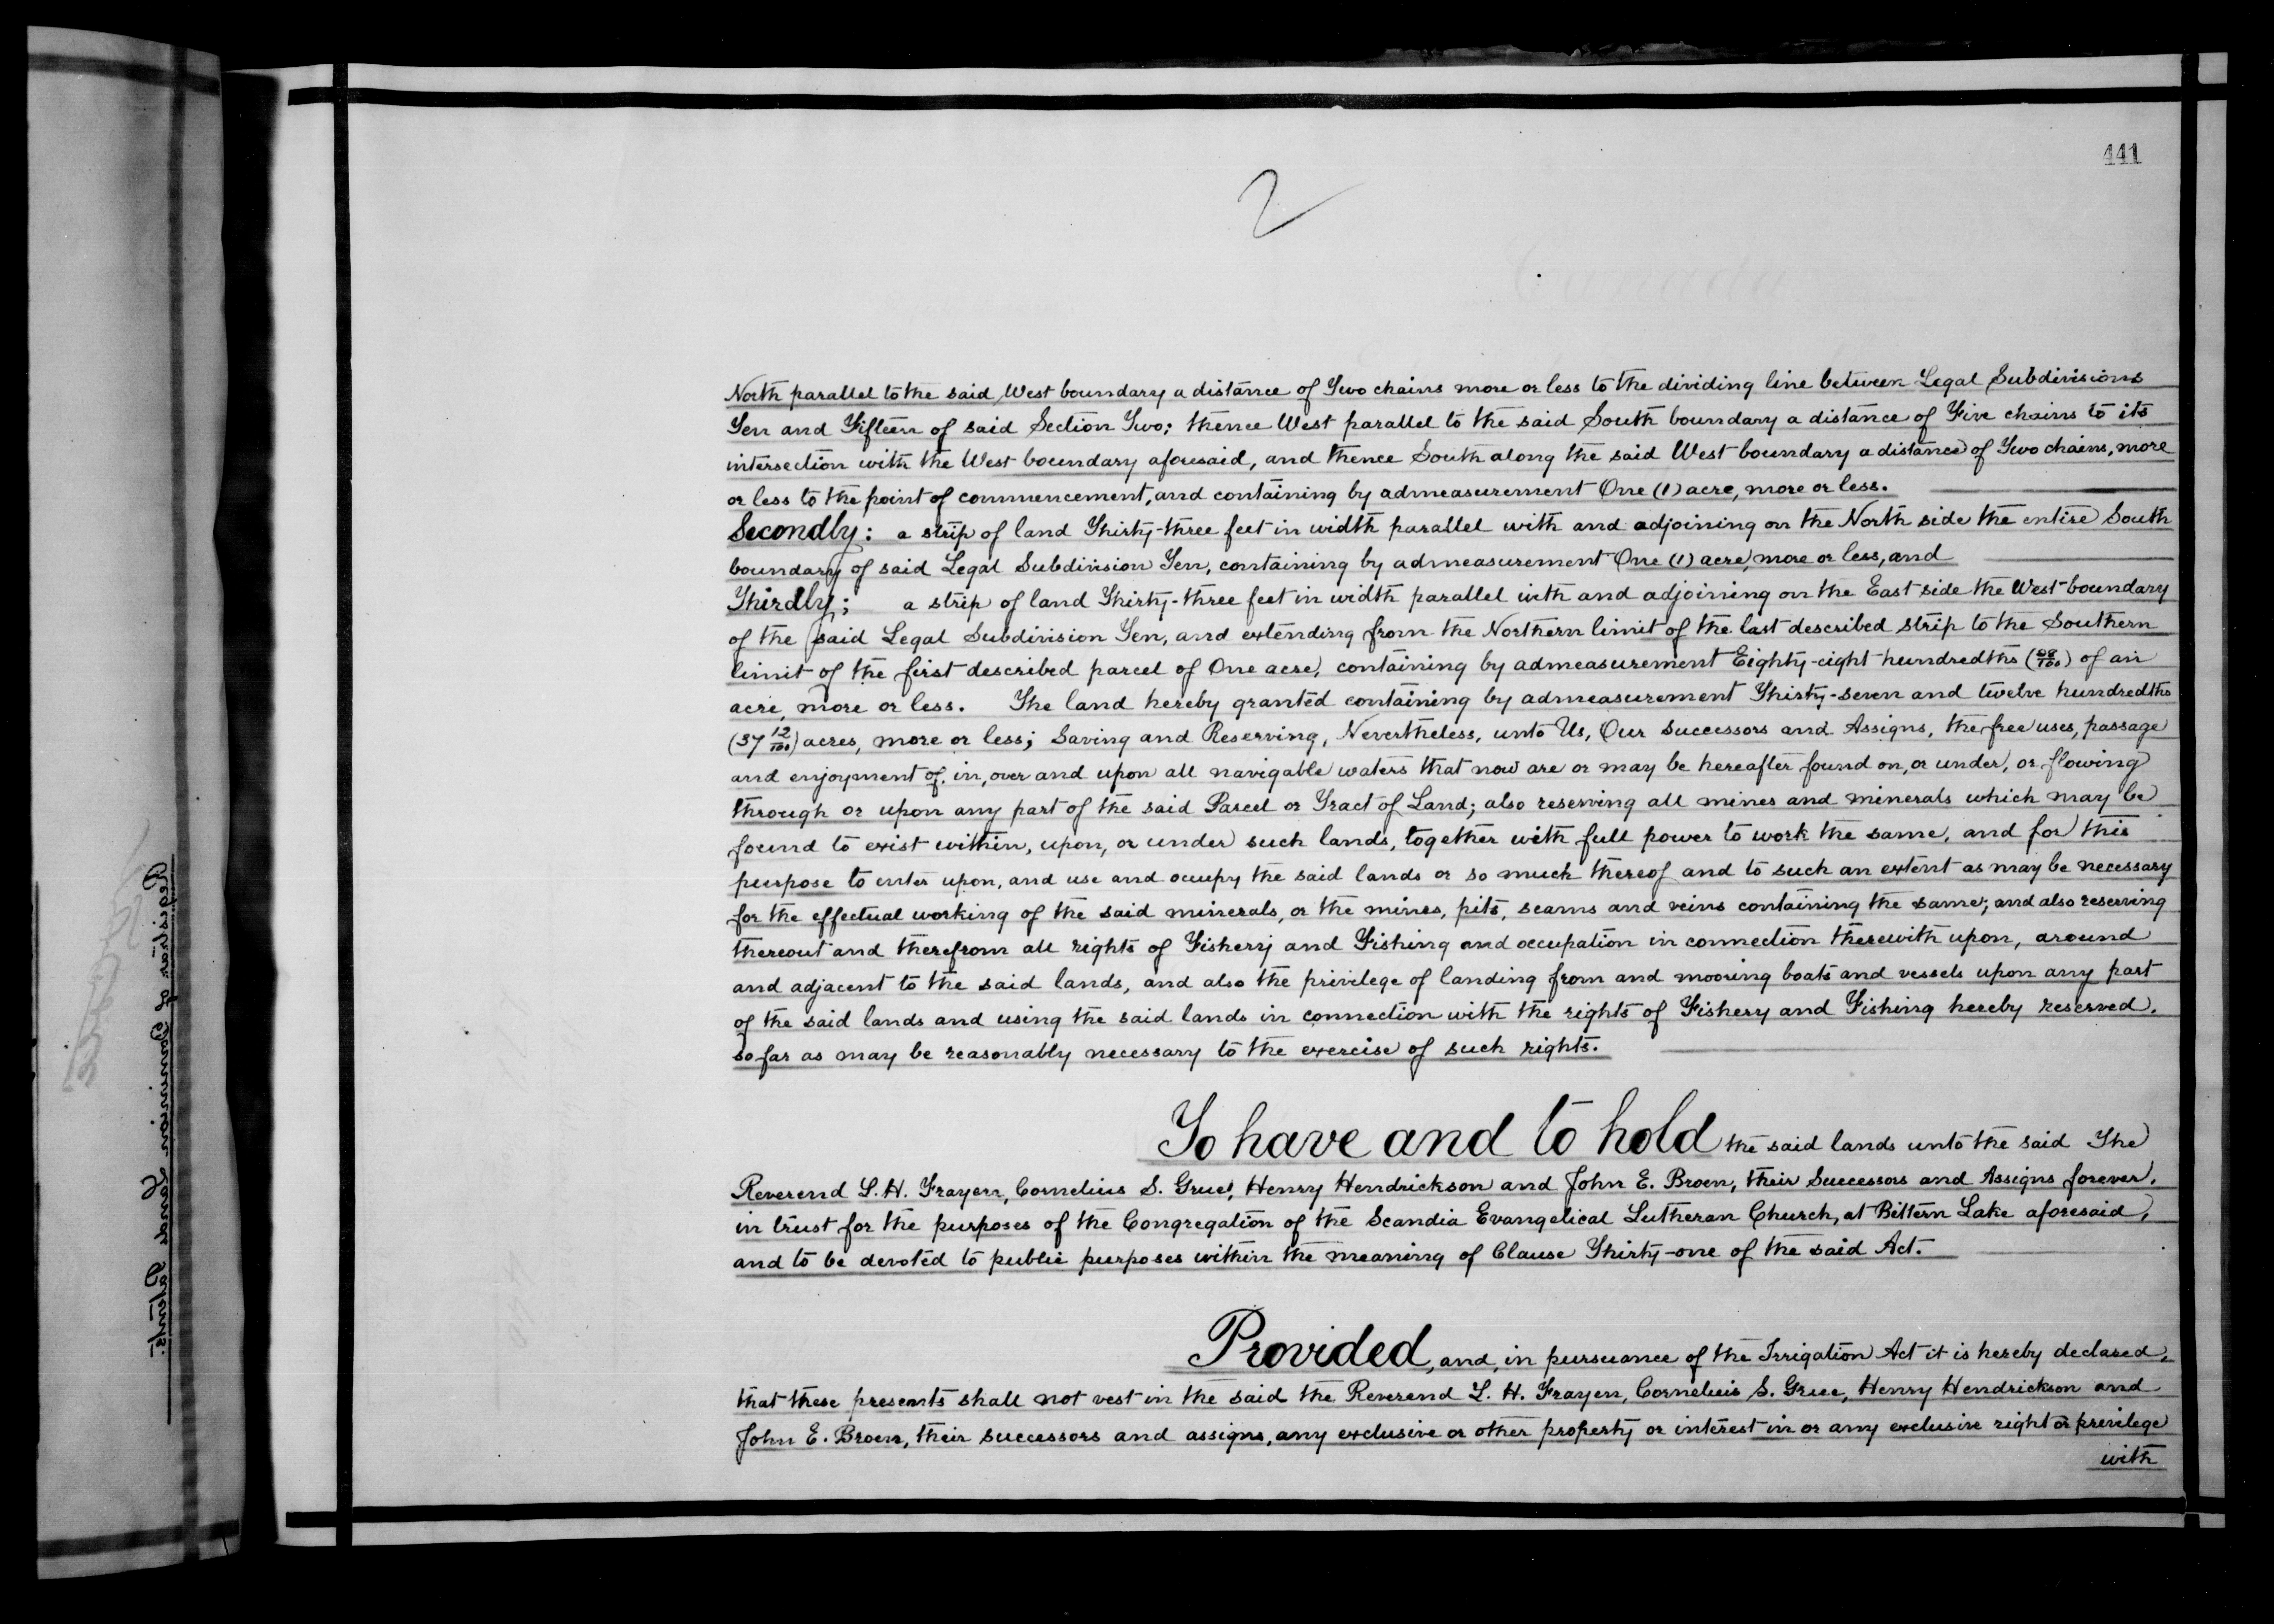 441
2
North parallel to the said West boundary a distance of Two chains more or less to the dividing line between Legal Subdivisions
Ten and Fifteen of said Section Two; thence West parallel to the said South boundary a distance of Five chains to its
intersection with the West boundary aforesaid, and thence South along the said West boundary a distance of Two chains, more
or less to the point of commencement, and containing by admeasurement One (1) acre, more or less.
Secondly: a strip of land Thirty-three feet in width parallel with and adjoining on the North side the entire South
boundary of said Legal Subdivision Ten, containing by admeasurement One (1) acre, more or less, and
Thirdly; a strip of land Thirty-three feet in width parallel with and adjoining on the East side the West boundary
of the said Legal Subdivision Ten, and extending from the Northern limit of the last described strip to the Southern
limit of the first described parcel of One acre, containing by admeasurement Eighty-eight hundredths (88/100) of an
acre, more or less. The land hereby granted containing by admeasurement Thirty-seven and twelve hundredths
(37 12/100) acres, more or less; Saving and Reserving, Nevertheless, unto Us, Our Successors and Assigns, the free uses, passage
and enjoyment of, in, over and upon all navigable waters that now are or may be hereafter found on, or under, or flowing
through or upon any part of the said Parcel or Tract of Land; also reserving all mines and minerals which may be
found to exist within, upon, or under such lands, together with full power to work the same, and for this
purpose to enter upon, and use and occupy the said lands or so much thereof and to such an extent as may be necessary
for the effectual working of the said minerals, or the mines, pits, seams and veins containing the same; and also reserving
thereout and therefrom all rights of Fishery and Fishing and occupation in connection therewith upon, around
and adjacent to the said lands, and also the privilege of landing from and mooring boats and vessels upon any part
of the said lands and using the said lands in connection with the rights of Fishery and Fishing hereby reserved,
so far as may be reasonably necessary to the exercise of such rights.
To have and to hold the said lands unto the said The
Reverend L. H. Frayen, Cornelius S. Grue, Henry Hendrickson and John E. Broen, their Successors and Assigns forever,
in trust for the purposes of the Congregation of the Scandia Evangelical Lutheran Church, at Bittern Lake aforesaid,
and to be devoted to public purposes within the meaning of Clause Thirty-one of the said Act.
Provided, and, in pursuance of the Irrigation Act it is hereby declared,
that these presents shall not vest in the said the Reverend L. H. Frayen, Cornelius S. Grue, Henry Hendrickson and
John E. Broen, their successors and assigns, any exclusive or other property or interest in or any exclusive right or privilege
with
Registrar of Dominion Lands Patents.